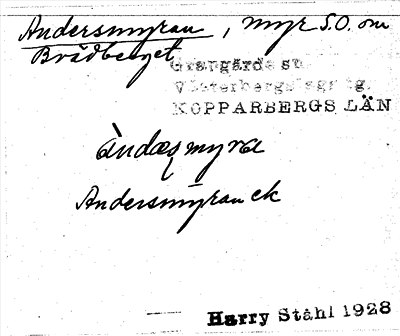 Andersmyran, myr S.O. om
Brådberget
Grangärde sn.
Västerbergslags tg.
KOPPARBERGS LÄN
àndæʂmyra
Andersmyran ek
Harry Ståhl 1928